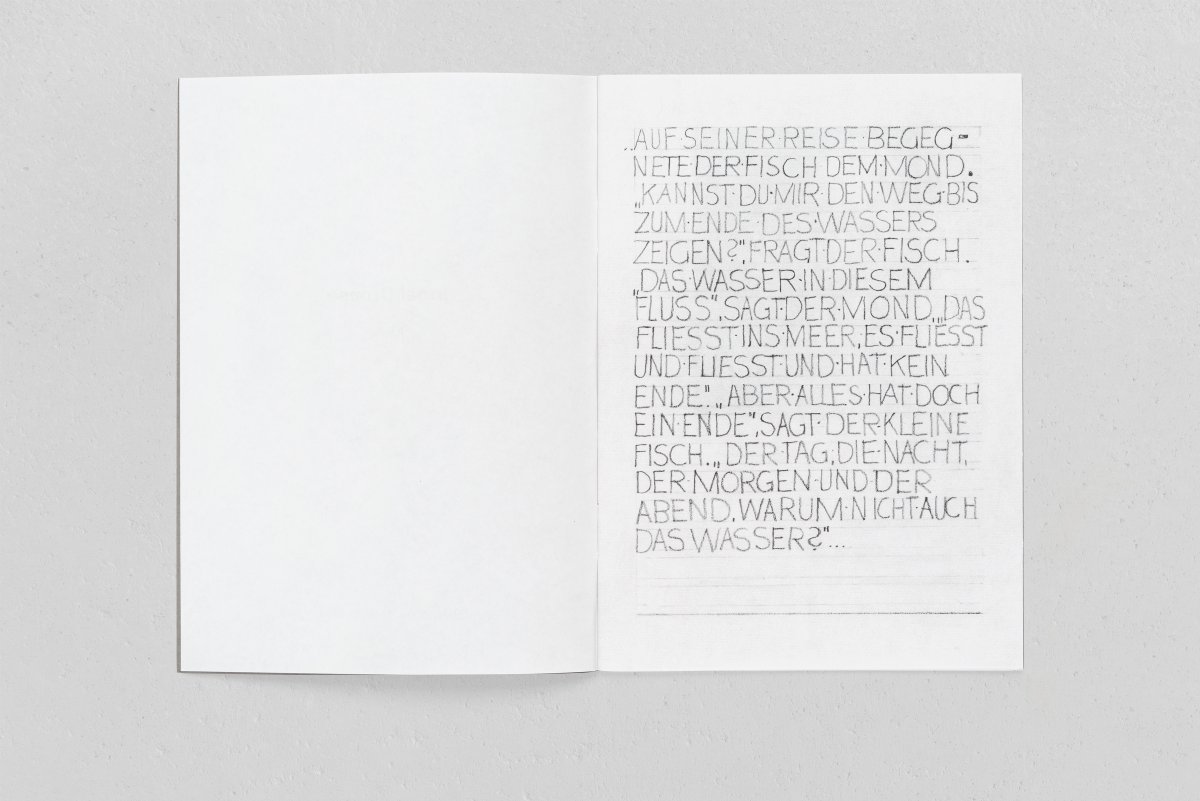 „AUF SEINER·REISE·BEGEG-
NETE·DER·FISCH DEM·MOND.
„KANNST·DU·MIR·DEN·WEG·BIS
ZUM·ENDE·DES·WASSERS
ZEIGEN?“, FRAGT·DER·FISCH.
„DAS·WASSER·IN·DIESEM
FLUSS“, SAGT·DER·MOND, „DAS
FLIESST·INS·MEER, ES·FLIESST
UND·FLIESST·UND·HAT·KEIN
ENDE“. „ABER·ALLES·HAT·DOCH
EIN·ENDE“, SAGT·DER·KLEINE
FISCH. „DER·TAG, DIE·NACHT,
DER·MORGEN·UND·DER
ABEND, WARUM·NICHT·AUCH
DAS WASSER?“...